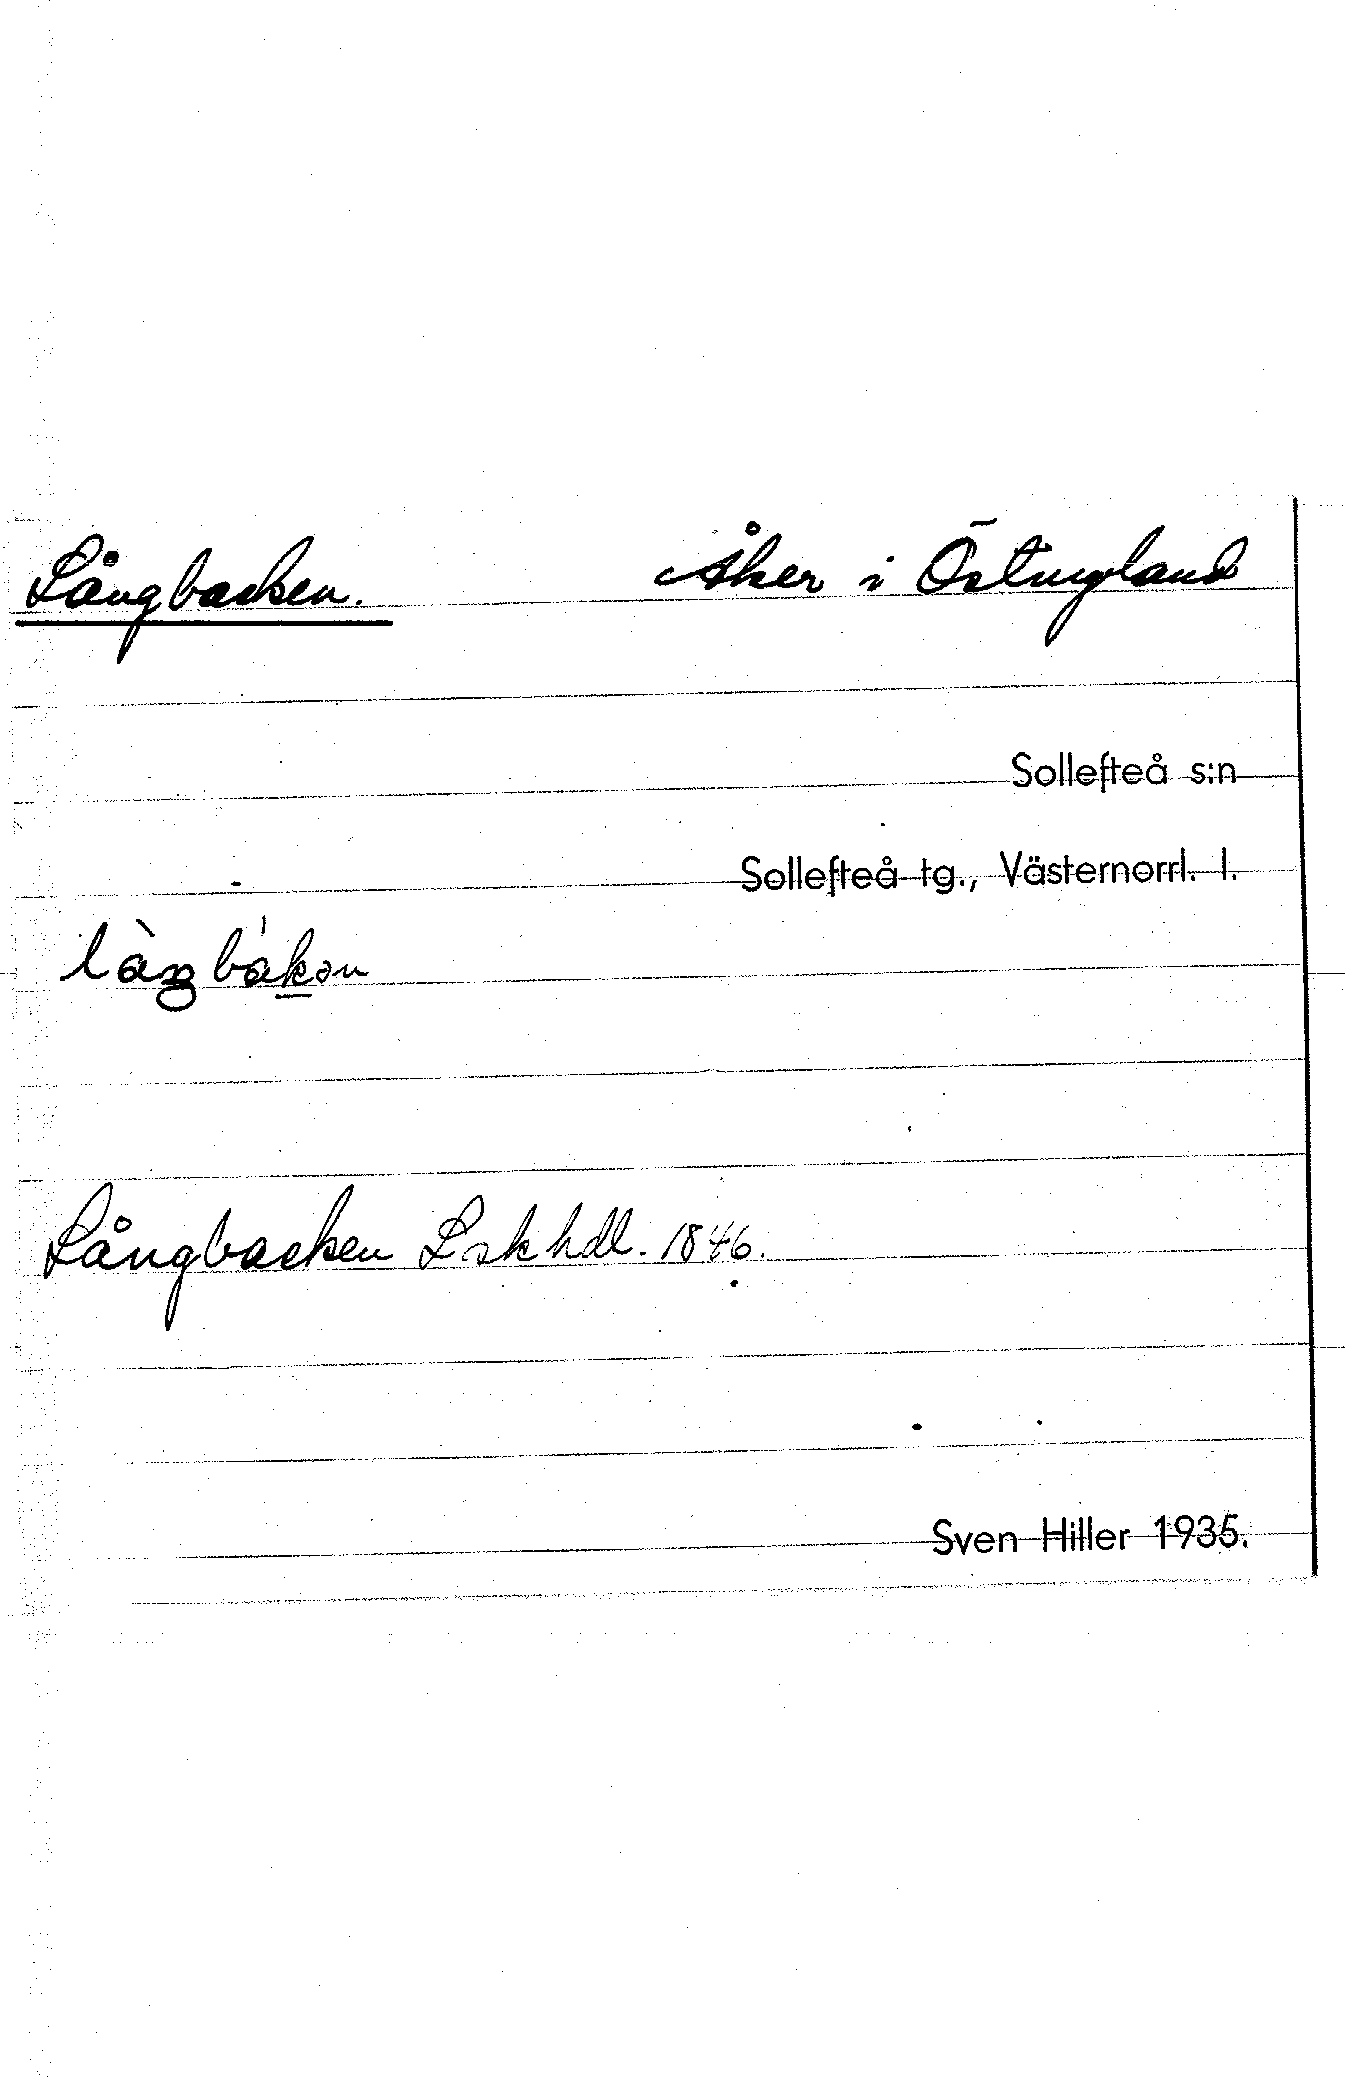 Långbacken. Åker i Östnyland
Sollefteå s:n
Sollefteå tg., Västernorrl. l.
Långbacken Lskhdl. 1846.
Sven Hiller 1935.